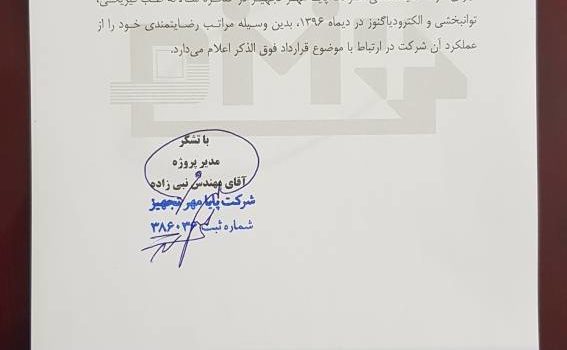 توانبخشی و الکترودیاگنوز در دیماه ۱۳۹۶، بدین وسیله مراتب رضایتمندی خود را از
عملکرد آن شرکت در ارتباط با موضوع قرارداد فوق الذکر اعلام می‌دارد.
با تشکر
مدیر پروژه
آقای مهندس نبی زاده
شرکت پایا مهر تجهیز
شماره ثبت ۳۸۶۰۳۶